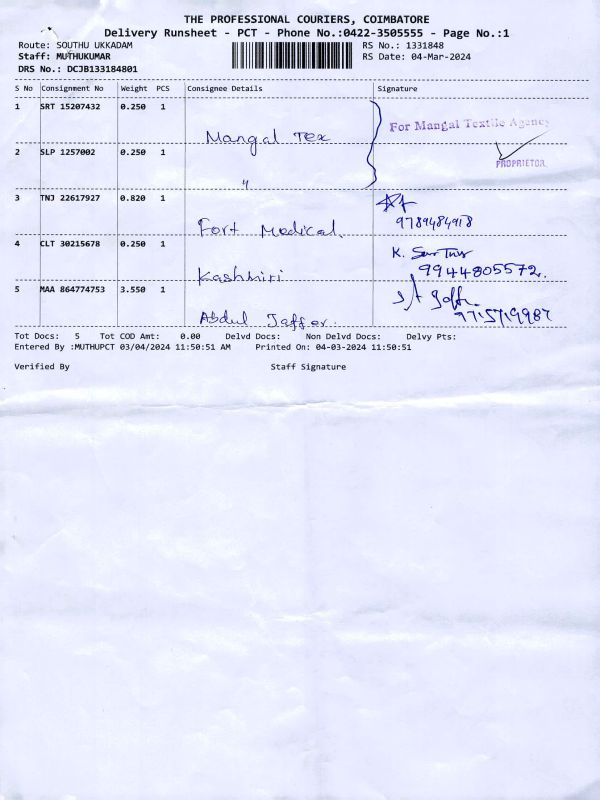 THE PROFESSIONAL COURIERS, COIMBATORE
Delivery Runsheet - PCT - Phone No.:0422-3505555 - Page No.:1
Route: SOUTHU UKKADAM RS No.: 1331848
Staff: MUTHUKUMAR RS Date: 04-Mar-2024
DRS No.: DCJB133184801
S No Consignment No Weight PCS Consignee Details Signature
1 SRT 15207432 0.250 1
Mangal Tex For Mangal Textile Agency
2 SLP 1257002 0.250 1
" PROPRIETOR
3 TNJ 22617927 0.820 1
Fort Medical. 9789484918
4 CLT 30215678 0.250 1 K.
Kashmiri 9944805572.
5 MAA 864774753 3.550 1
Abdul Jaffer. 9715719987
Tot Docs: 5 Tot COD Amt: 0.00 Delvd Docs: Non Delvd Docs: Delvy Pts:
Entered By :MUTHUPCT 03/04/2024 11:50:51 AM Printed On: 04-03-2024 11:50:51
Verified By Staff Signature